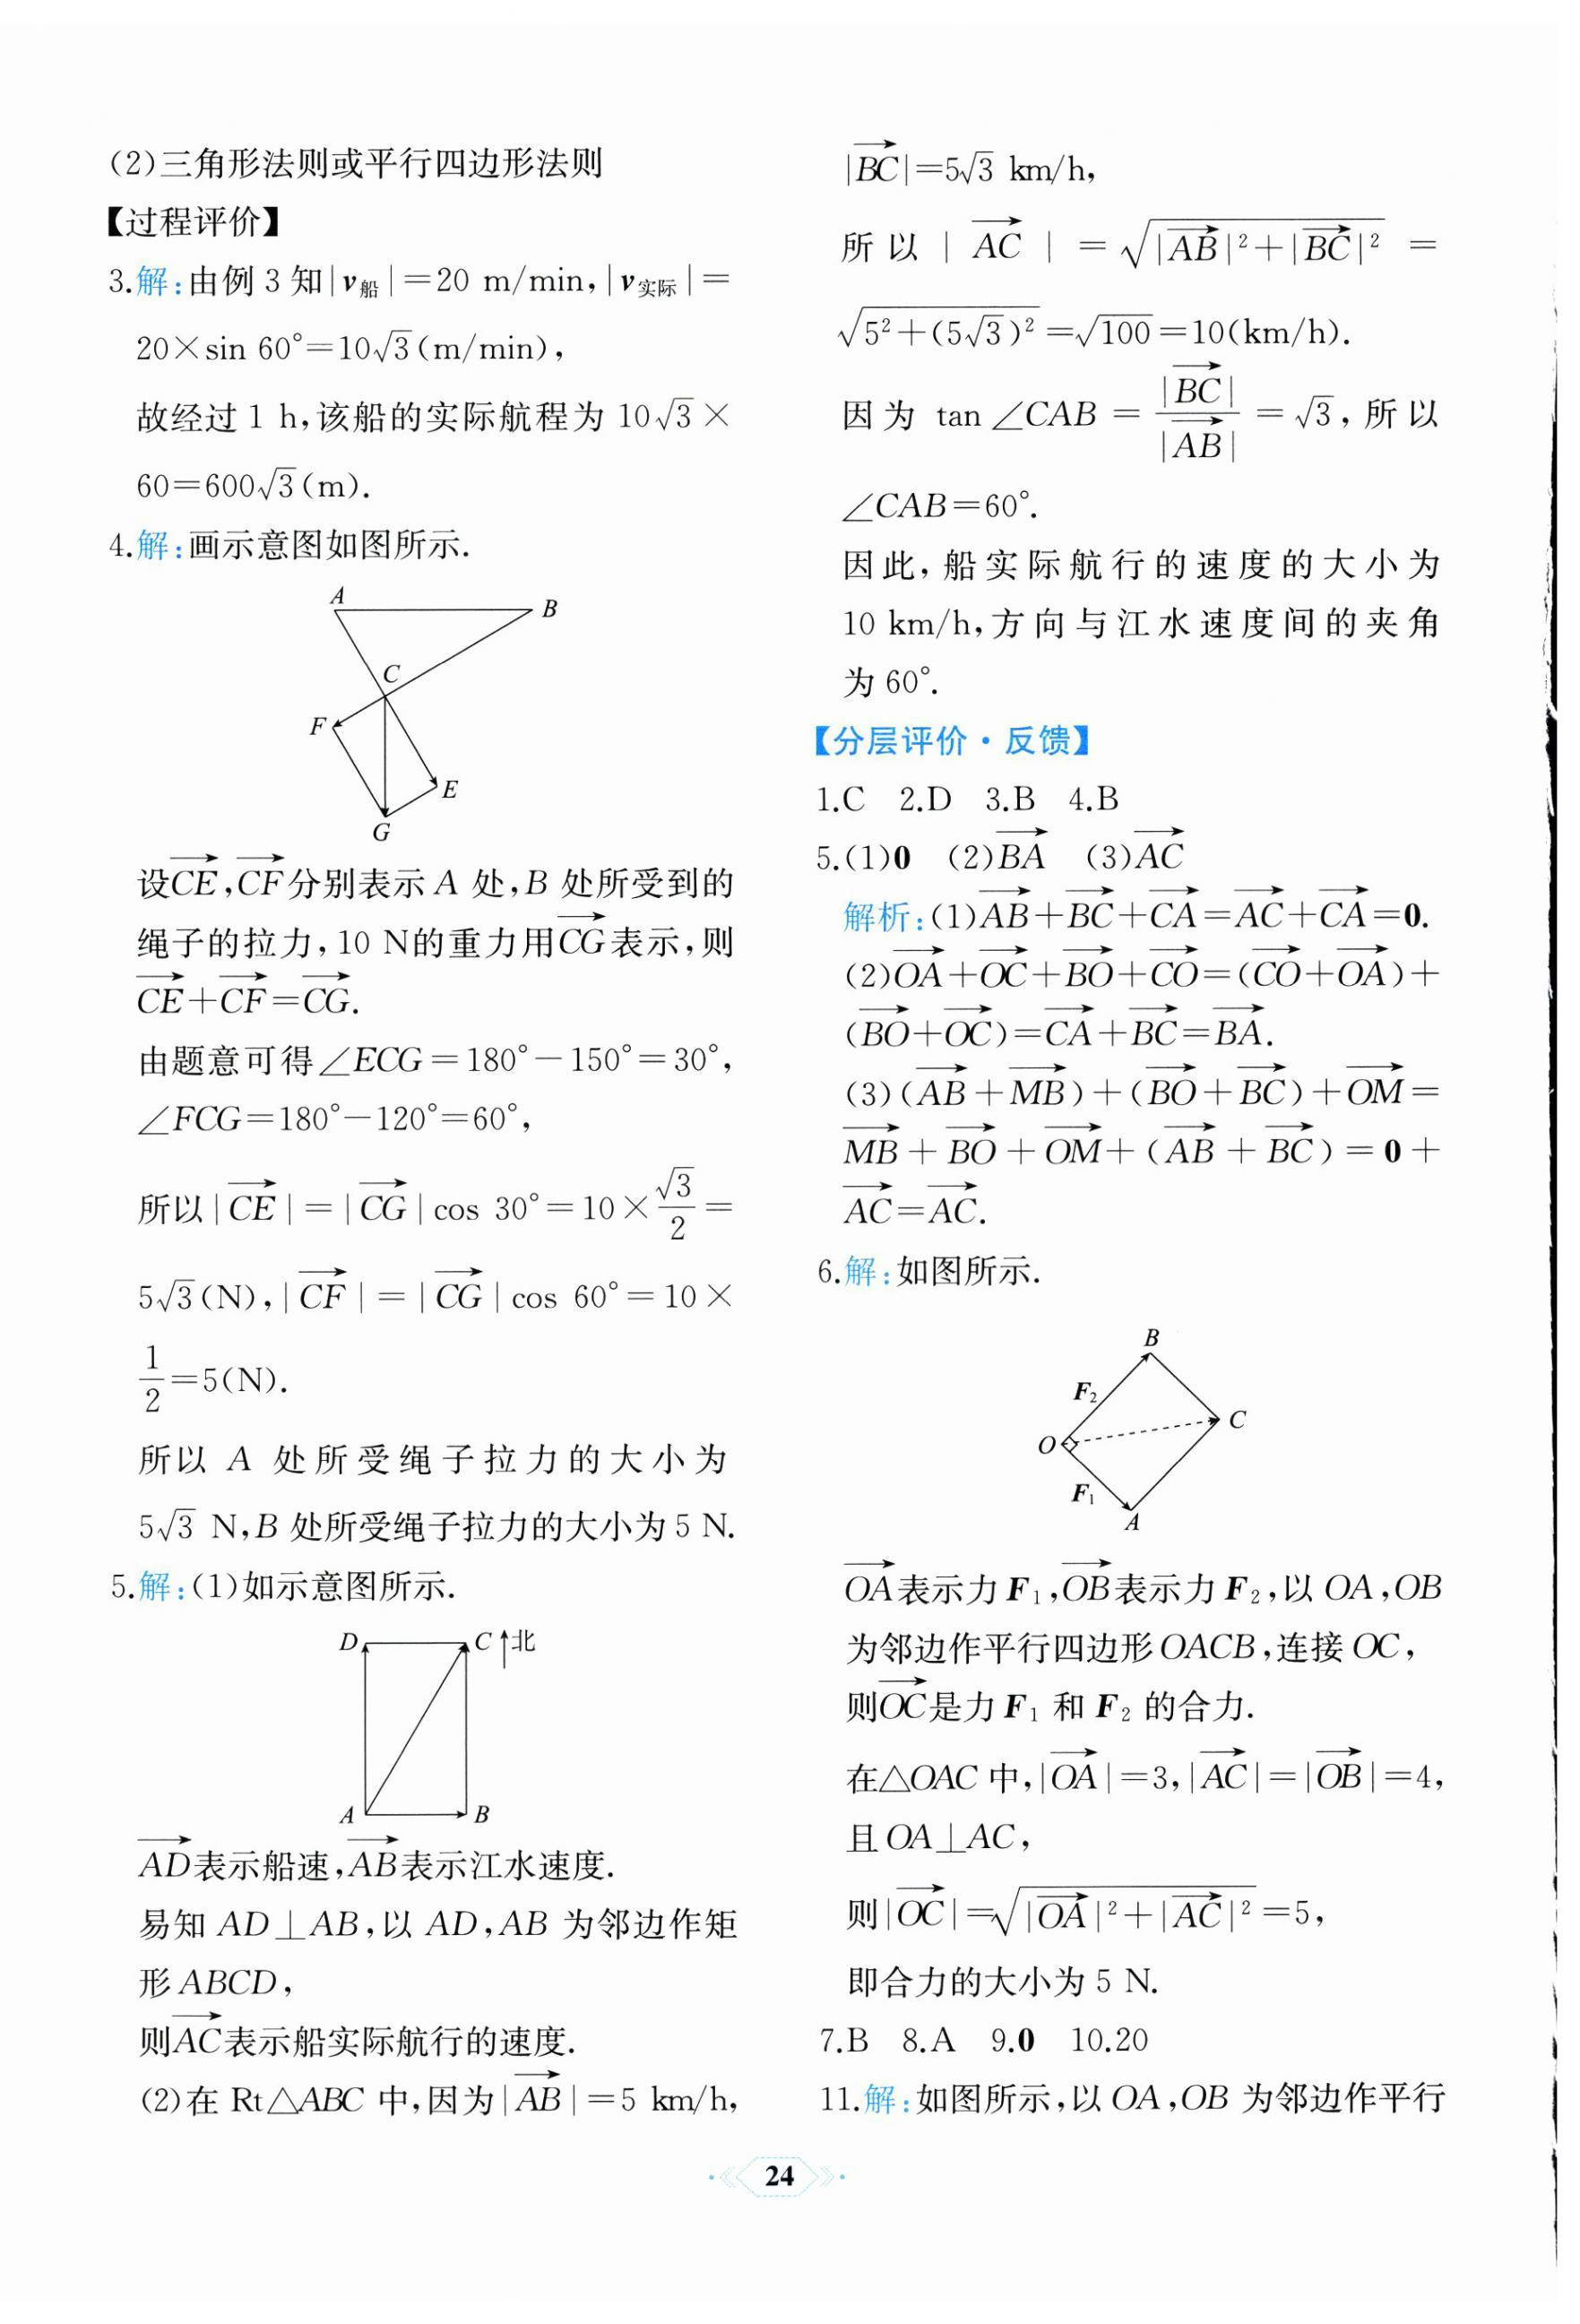 (2)三角形法则或平行四边形法则
【过程评价】
3.解:由例 3 知|v船|=20 m/min,|v实际|=
20×sin 60°=10√3(m/min),
故经过 1 h,该船的实际航程为 10√3×
60=600√3(m).
4.解:画示意图如图所示.
A
B
C
F
E
G
设CE→,CF→分别表示 A 处,B 处所受到的
绳子的拉力,10 N的重力用CG→表示,则
CE→+CF→=CG→.
由题意可得∠ECG=180°-150°=30°,
∠FCG=180°-120°=60°,
所以|CE→|=|CG→|cos 30°=10×√3/2=
5√3(N),|CF→|=|CG→|cos 60°=10×
1/2=5(N).
所以 A 处所受绳子拉力的大小为
5√3 N,B 处所受绳子拉力的大小为 5 N.
5.解:(1)如示意图所示.
D
C 北
A
B
AD→表示船速,AB→表示江水速度.
易知 AD⊥AB,以 AD,AB 为邻边作矩
形 ABCD,
则AC→表示船实际航行的速度.
(2)在 Rt△ABC 中,因为|AB→|=5 km/h,
|BC→|=5√3 km/h,
所以|AC→|=√(|AB→|²+|BC→|²)=
√(5²+(5√3)²)=√100=10(km/h).
因为 tan ∠CAB=|BC→|/|AB→|=√3,所以
∠CAB=60°.
因此,船实际航行的速度的大小为
10 km/h,方向与江水速度间的夹角
为 60°.
【分层评价·反馈】
1.C 2.D 3.B 4.B
5.(1)0 (2)BA→ (3)AC→
解析:(1)AB→+BC→+CA→=AC→+CA→=0.
(2)OA→+OC→+BO→+CO→=(CO→+OA→)+
(BO→+OC→)=CA→+BC→=BA→.
(3)(AB→+MB→)+(BO→+BC→)+OM→=
MB→+BO→+OM→+(AB→+BC→)=0+
AC→=AC→.
6.解:如图所示.
B
F₂
C
O
F₁
A
OA→表示力 F₁,OB→表示力 F₂,以 OA,OB
为邻边作平行四边形 OACB,连接 OC,
则OC→是力 F₁ 和 F₂ 的合力.
在△OAC 中,|OA→|=3,|AC→|=|OB→|=4,
且 OA⊥AC,
则|OC→|=√(|OA→|²+|AC→|²)=5,
即合力的大小为 5 N.
7.B 8.A 9.0 10.20
11.解:如图所示,以 OA,OB 为邻边作平行
24